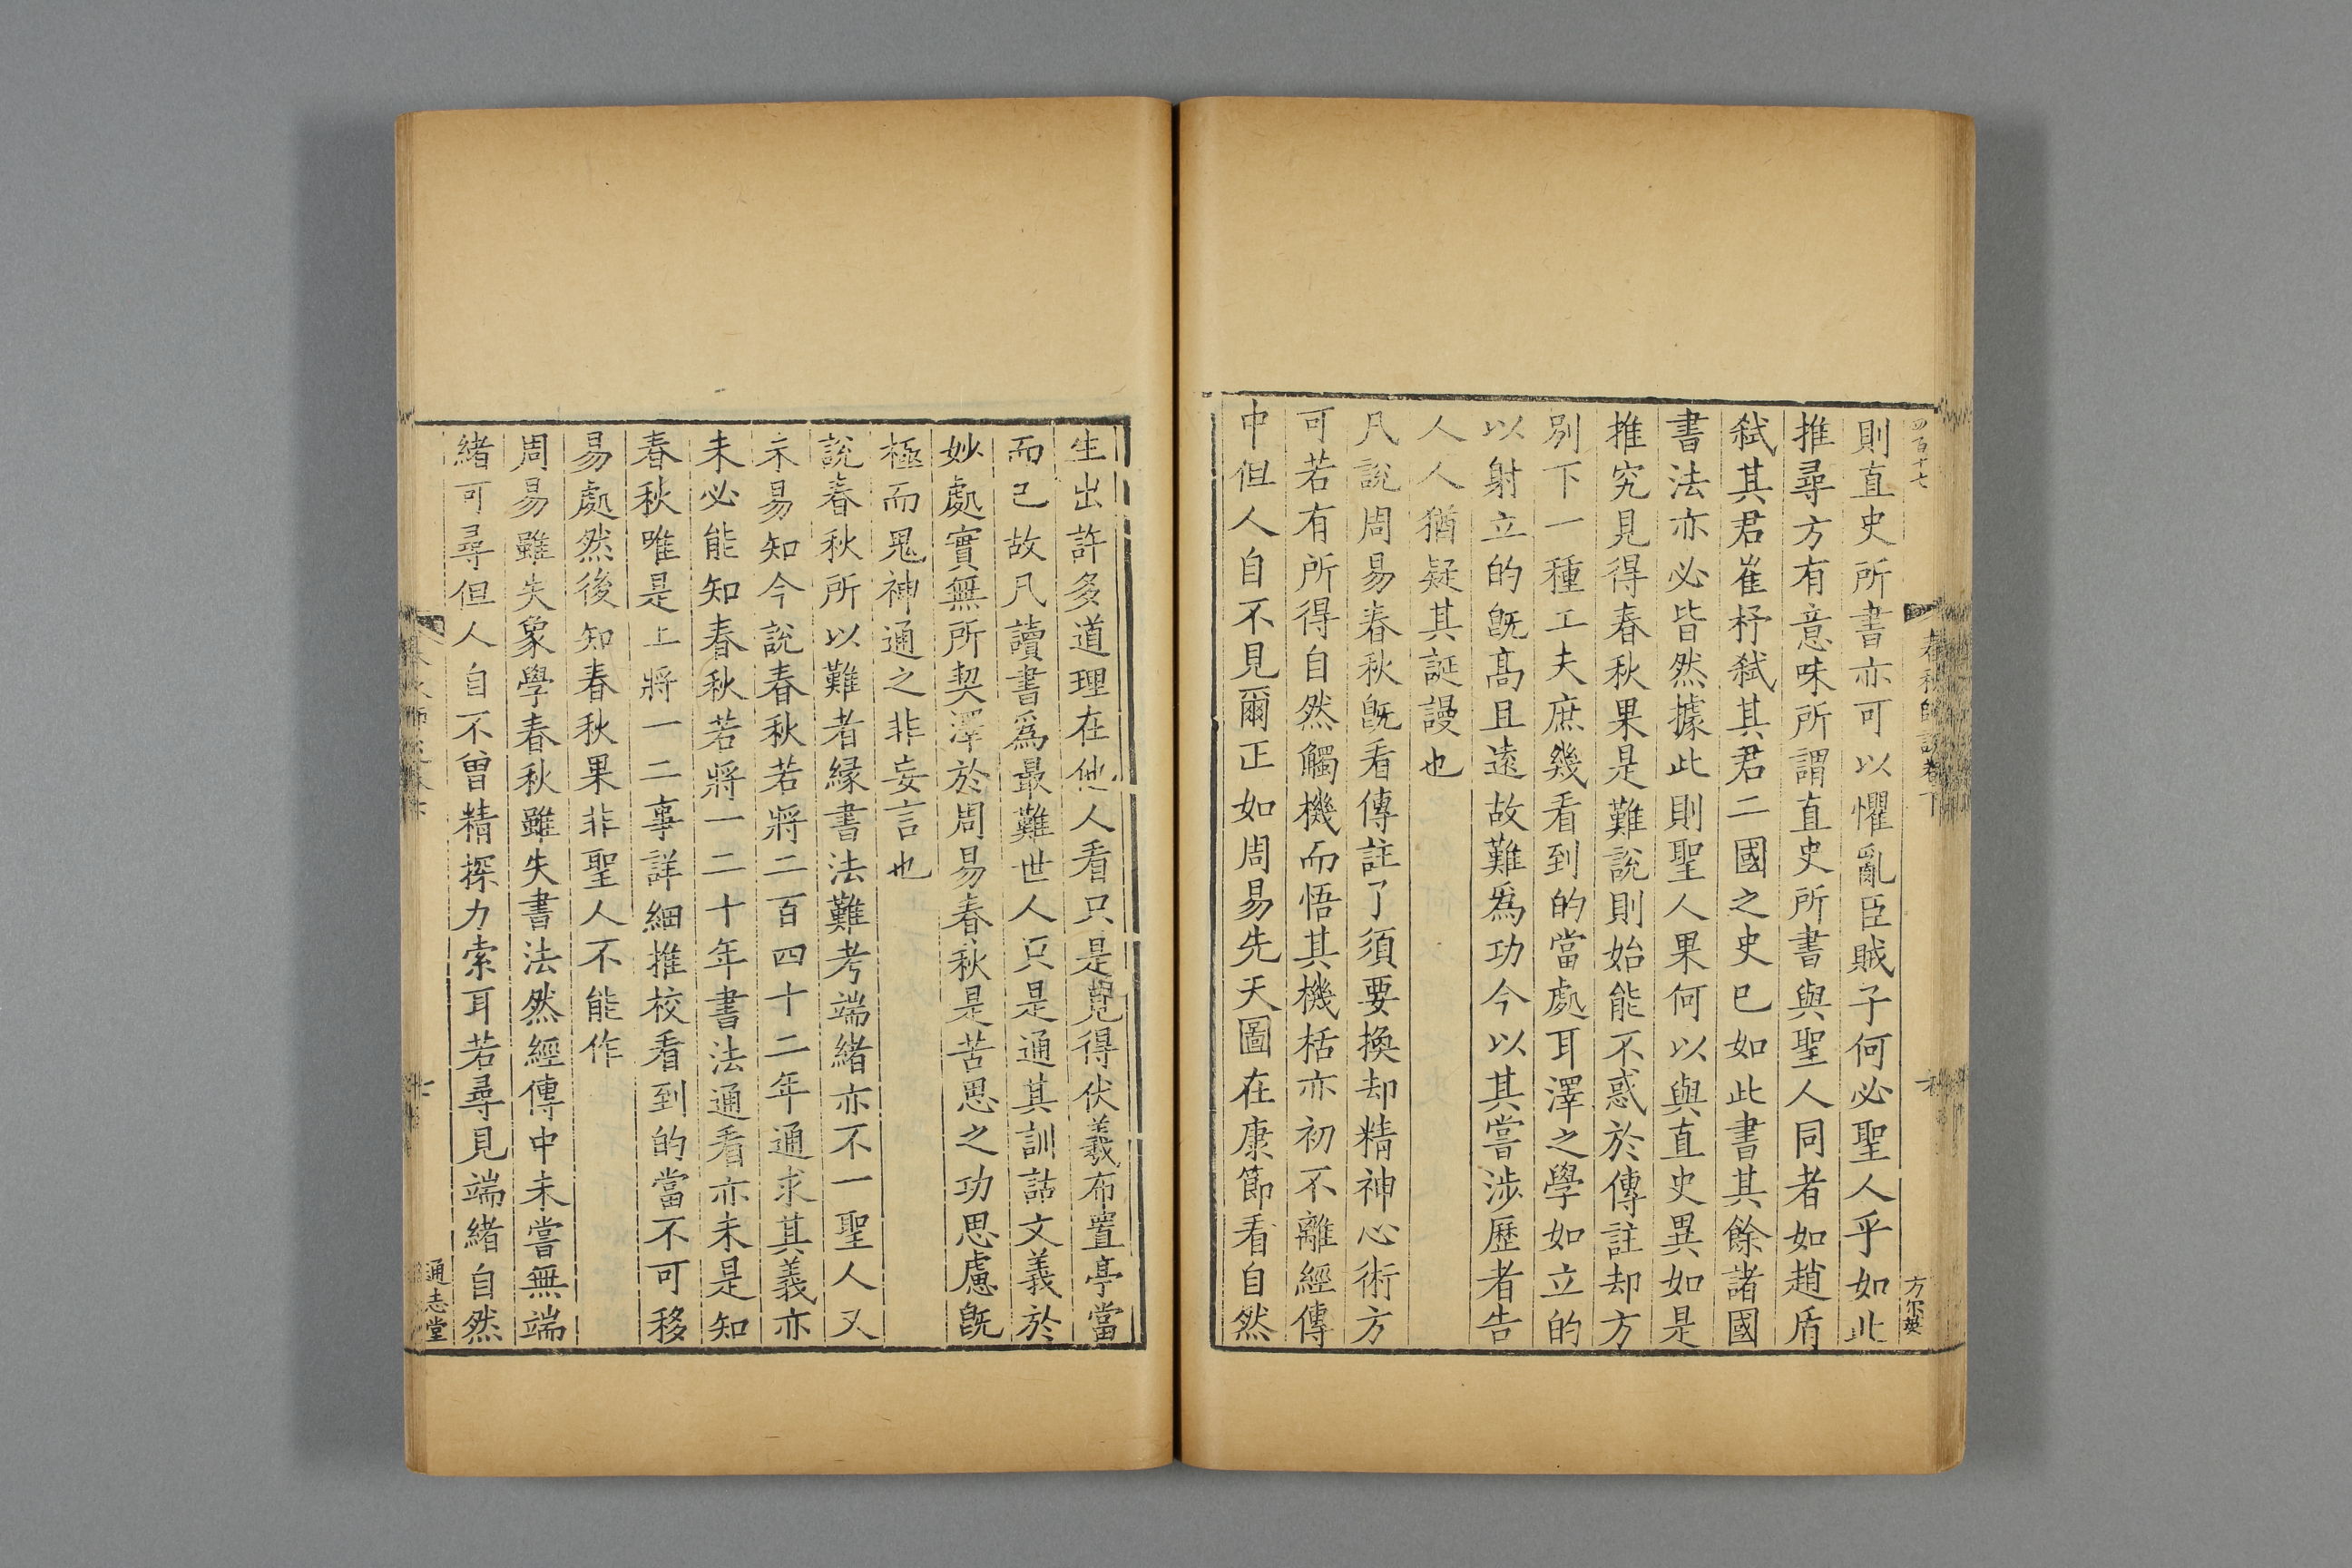 四百十七
春秋師說卷下
方尔英
則直史所書亦可以懼亂臣賊子何必聖人乎如此
推尋方有意味所謂直史所書與聖人同者如趙盾
弑其君崔杼弑其君二國之史已如此書其餘諸國
書法亦必皆然據此則聖人果何以與直史異如是
推究見得春秋果是難說則始能不惑於傳註却方
別下一種工夫庶幾看到的當處耳澤之學如立的
以射立的旣髙且逺故難爲功今以其嘗涉歷者告
人人猶疑其誕謾也
凡說周易春秋旣看傳註了須要換却精神心術方
可若有所得自然觸機而悟其機栝亦初不離經傳
中但人自不見爾正如周易先天圖在康節看自然
生出許多道理在他人看只是見得伏羲布置亭當
而已故凡讀書爲最難世人只是通其訓詁文義於
妙處實無所契澤於周易春秋是苦思之功思慮旣
極而鬼神通之非妄言也
說春秋所以難者縁書法難考端緒亦不一聖人又
未易知今說春秋若將二百四十二年通求其義亦
未必能知春秋若將一二十年書法通看亦未是知
春秋唯是上將一二事詳細推校看到的當不可移
易處然後知春秋果非聖人不能作
周易雖失象學春秋雖失書法然經傳中未嘗無端
緒可尋但人自不曽精探力索耳若尋見端緒自然
通志堂